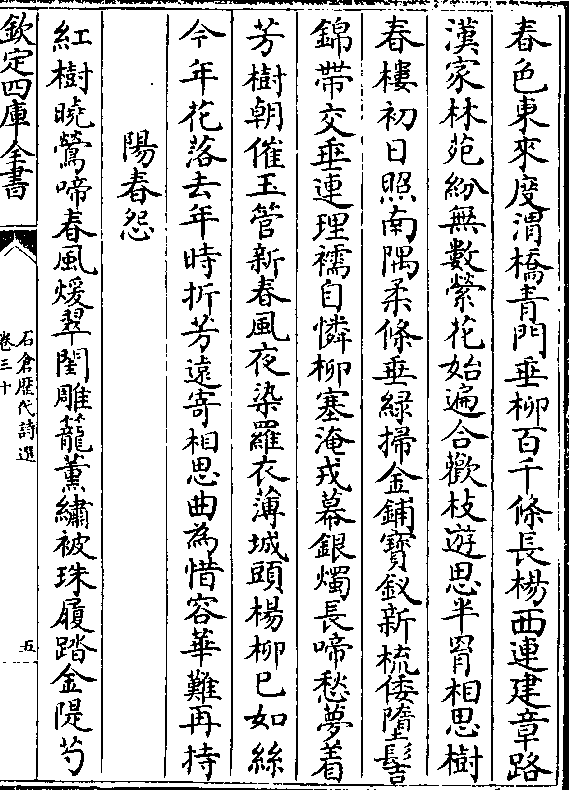 春色東來度渭橋青門垂柳百千條長楊西連建章路
漢家林苑紛無數縈花始遍合歡枝遊思半罥相思樹
春樓初日照南隅柔條垂綠掃金鋪寶釵新梳倭墮髻
錦帶交垂連理襦自憐柳塞淹戎幕銀燭長啼愁夢着
芳樹朝催玉管新春風夜染羅衣薄城頭楊柳已如絲
今年花落去年時折芳遠寄相思曲為惜容華難再持
陽春怨
紅樹曉鶯啼春風煖翠閨雕籠薰繡被珠履踏金隄芍
欽定四庫全書
石倉歷代詩選
卷三十
五